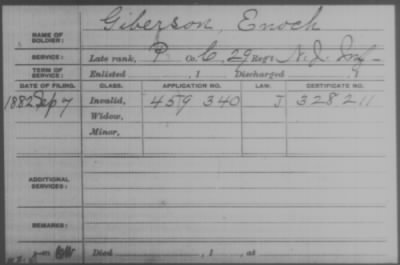 NAME OF SOLDIER: Giberson, Enoch
SERVICE: Late rank, P Co. C, 29 Reg't N. J. Inf
TERM OF SERVICE: Enlisted , 1 Discharged , 1
DATE OF FILING. CLASS. APPLICATION NO. LAW. CERTIFICATE NO.
1882 Sep 7 Invalid, 459 340 J 328 211
Widow,
Minor,
ADDITIONAL SERVICES:
REMARKS:
Died , 1 , at